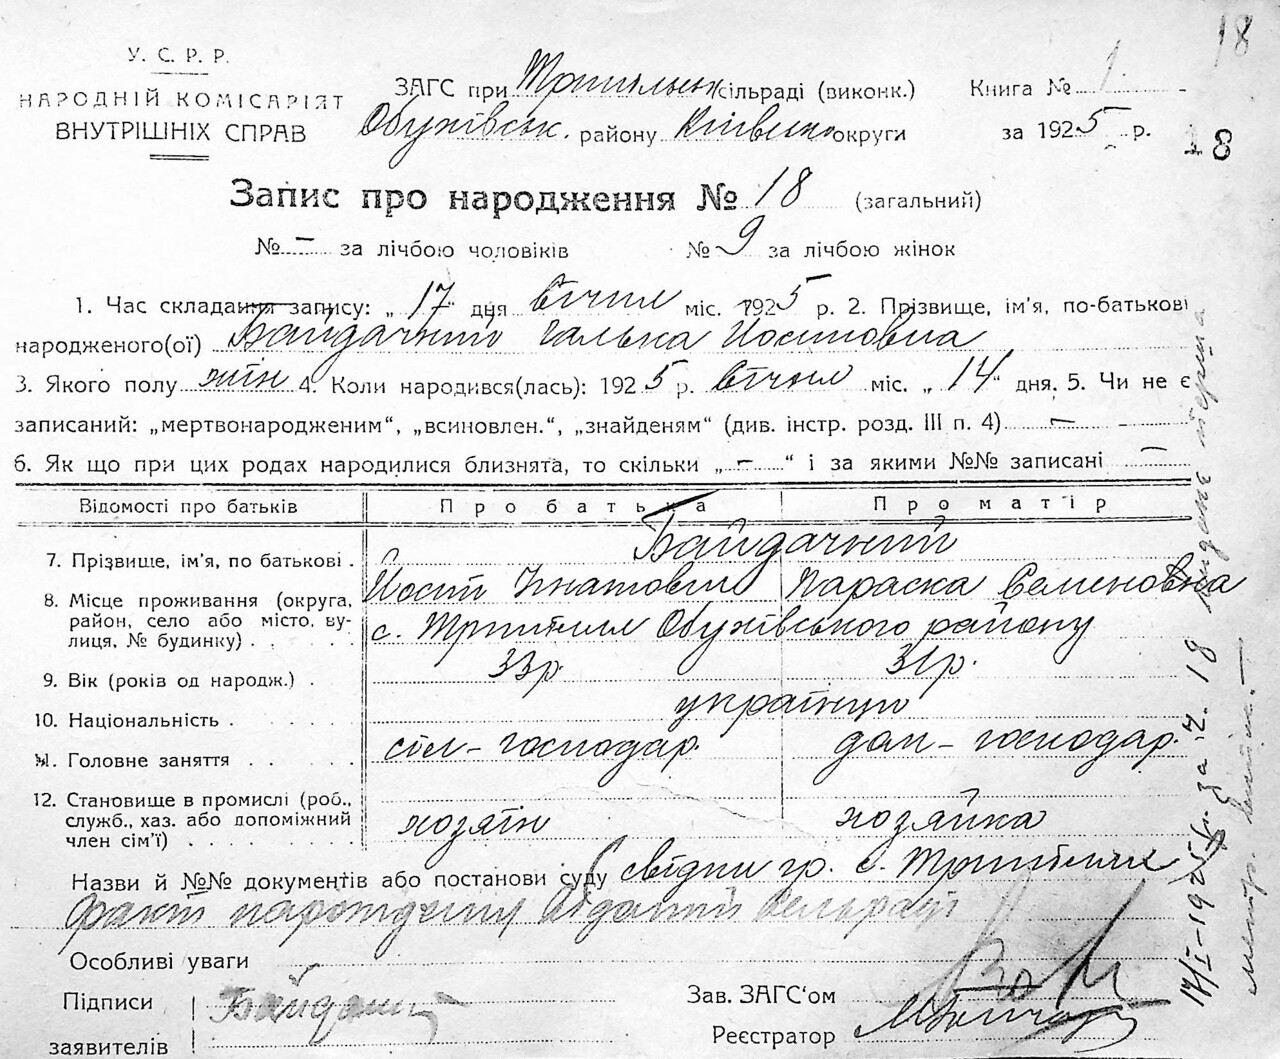 18
У. С. Р. Р.
НАРОДНІЙ КОМІСАРІЯТ
ВНУТРІШНІХ СПРАВ
ЗАГС при Трипільськ сільраді (виконк.)
Обухівськ. району Київської округи
Книга № 1
за 1925 р.
18
Запис про народження № 18 (загальний)
№ – за лічбою чоловіків № 9 за лічбою жінок
1. Час складання запису: „17“ дня Січня міс. 1925 р. 2. Прізвище, ім'я, по-батькові
народженого(ої) Байдачний Галька Йосиповна
3. Якого полу жін 4. Коли народився(лась): 1925 р. Січня міс. „14“ дня. 5. Чи не є
записаний: „мертвонародженим“, „всиновлен.“, „знайденям“ (див. інстр. розд. III п. 4) —
6. Як що при цих родах народилися близнята, то скільки „–“ і за якими №№ записані —
Відомості про батьків Про батька Про матір
Байдачний
7. Прізвище, ім'я, по батькові . Йосип Ігнатович Параска Семеновна
8. Місце проживання (округа,
район, село або місто, ву-
лиця, № будинку) . . . .
с. Трипілля Обухівського району
9. Вік (років од народж.) . 33р. 31р.
10. Національність . . . . . українці
11. Головне заняття . . . . . сіл–господар. дом–господар.
12. Становище в промислі (роб.,
служб., хаз. або допоміжний
член сім'ї) . . . . . . . .
хозяїн хозяйка
Назви й №№ документів або постанови суду свідки гр. с. Трипілля
факт народження Сельради
Особливі уваги
Підписи
заявителів
Байдачн
Зав. ЗАГС'ом
Реєстратор
17/I–1925р. за ч. 18 видане перша